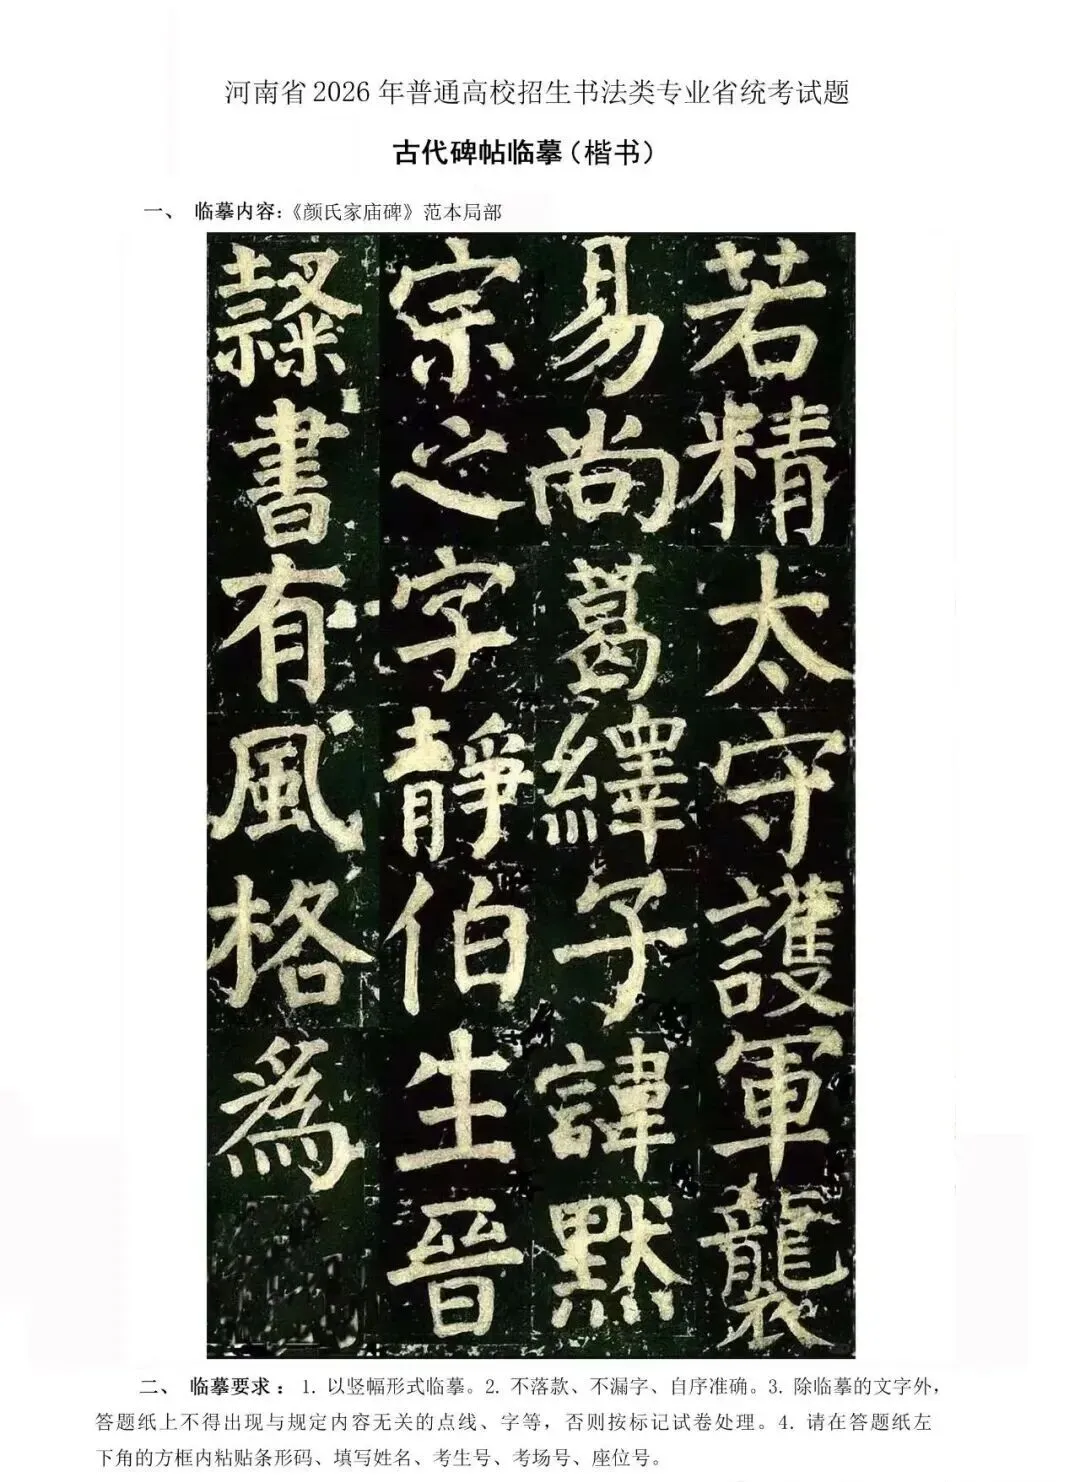 河南省2026年普通高校招生书法类专业省统考试题
古代碑帖临摹（楷书）
一、 临摹内容：《颜氏家庙碑》范本局部
若精太守護軍襲
易尚葛繹子諱默
宗之字靜伯生晉
隸書有風格為
二、 临摹要求： 1. 以竖幅形式临摹。2. 不落款、不漏字、自序准确。3. 除临摹的文字外，
答题纸上不得出现与规定内容无关的点线、字等，否则按标记试卷处理。4. 请在答题纸左
下角的方框内粘贴条形码、填写姓名、考生号、考场号、座位号。